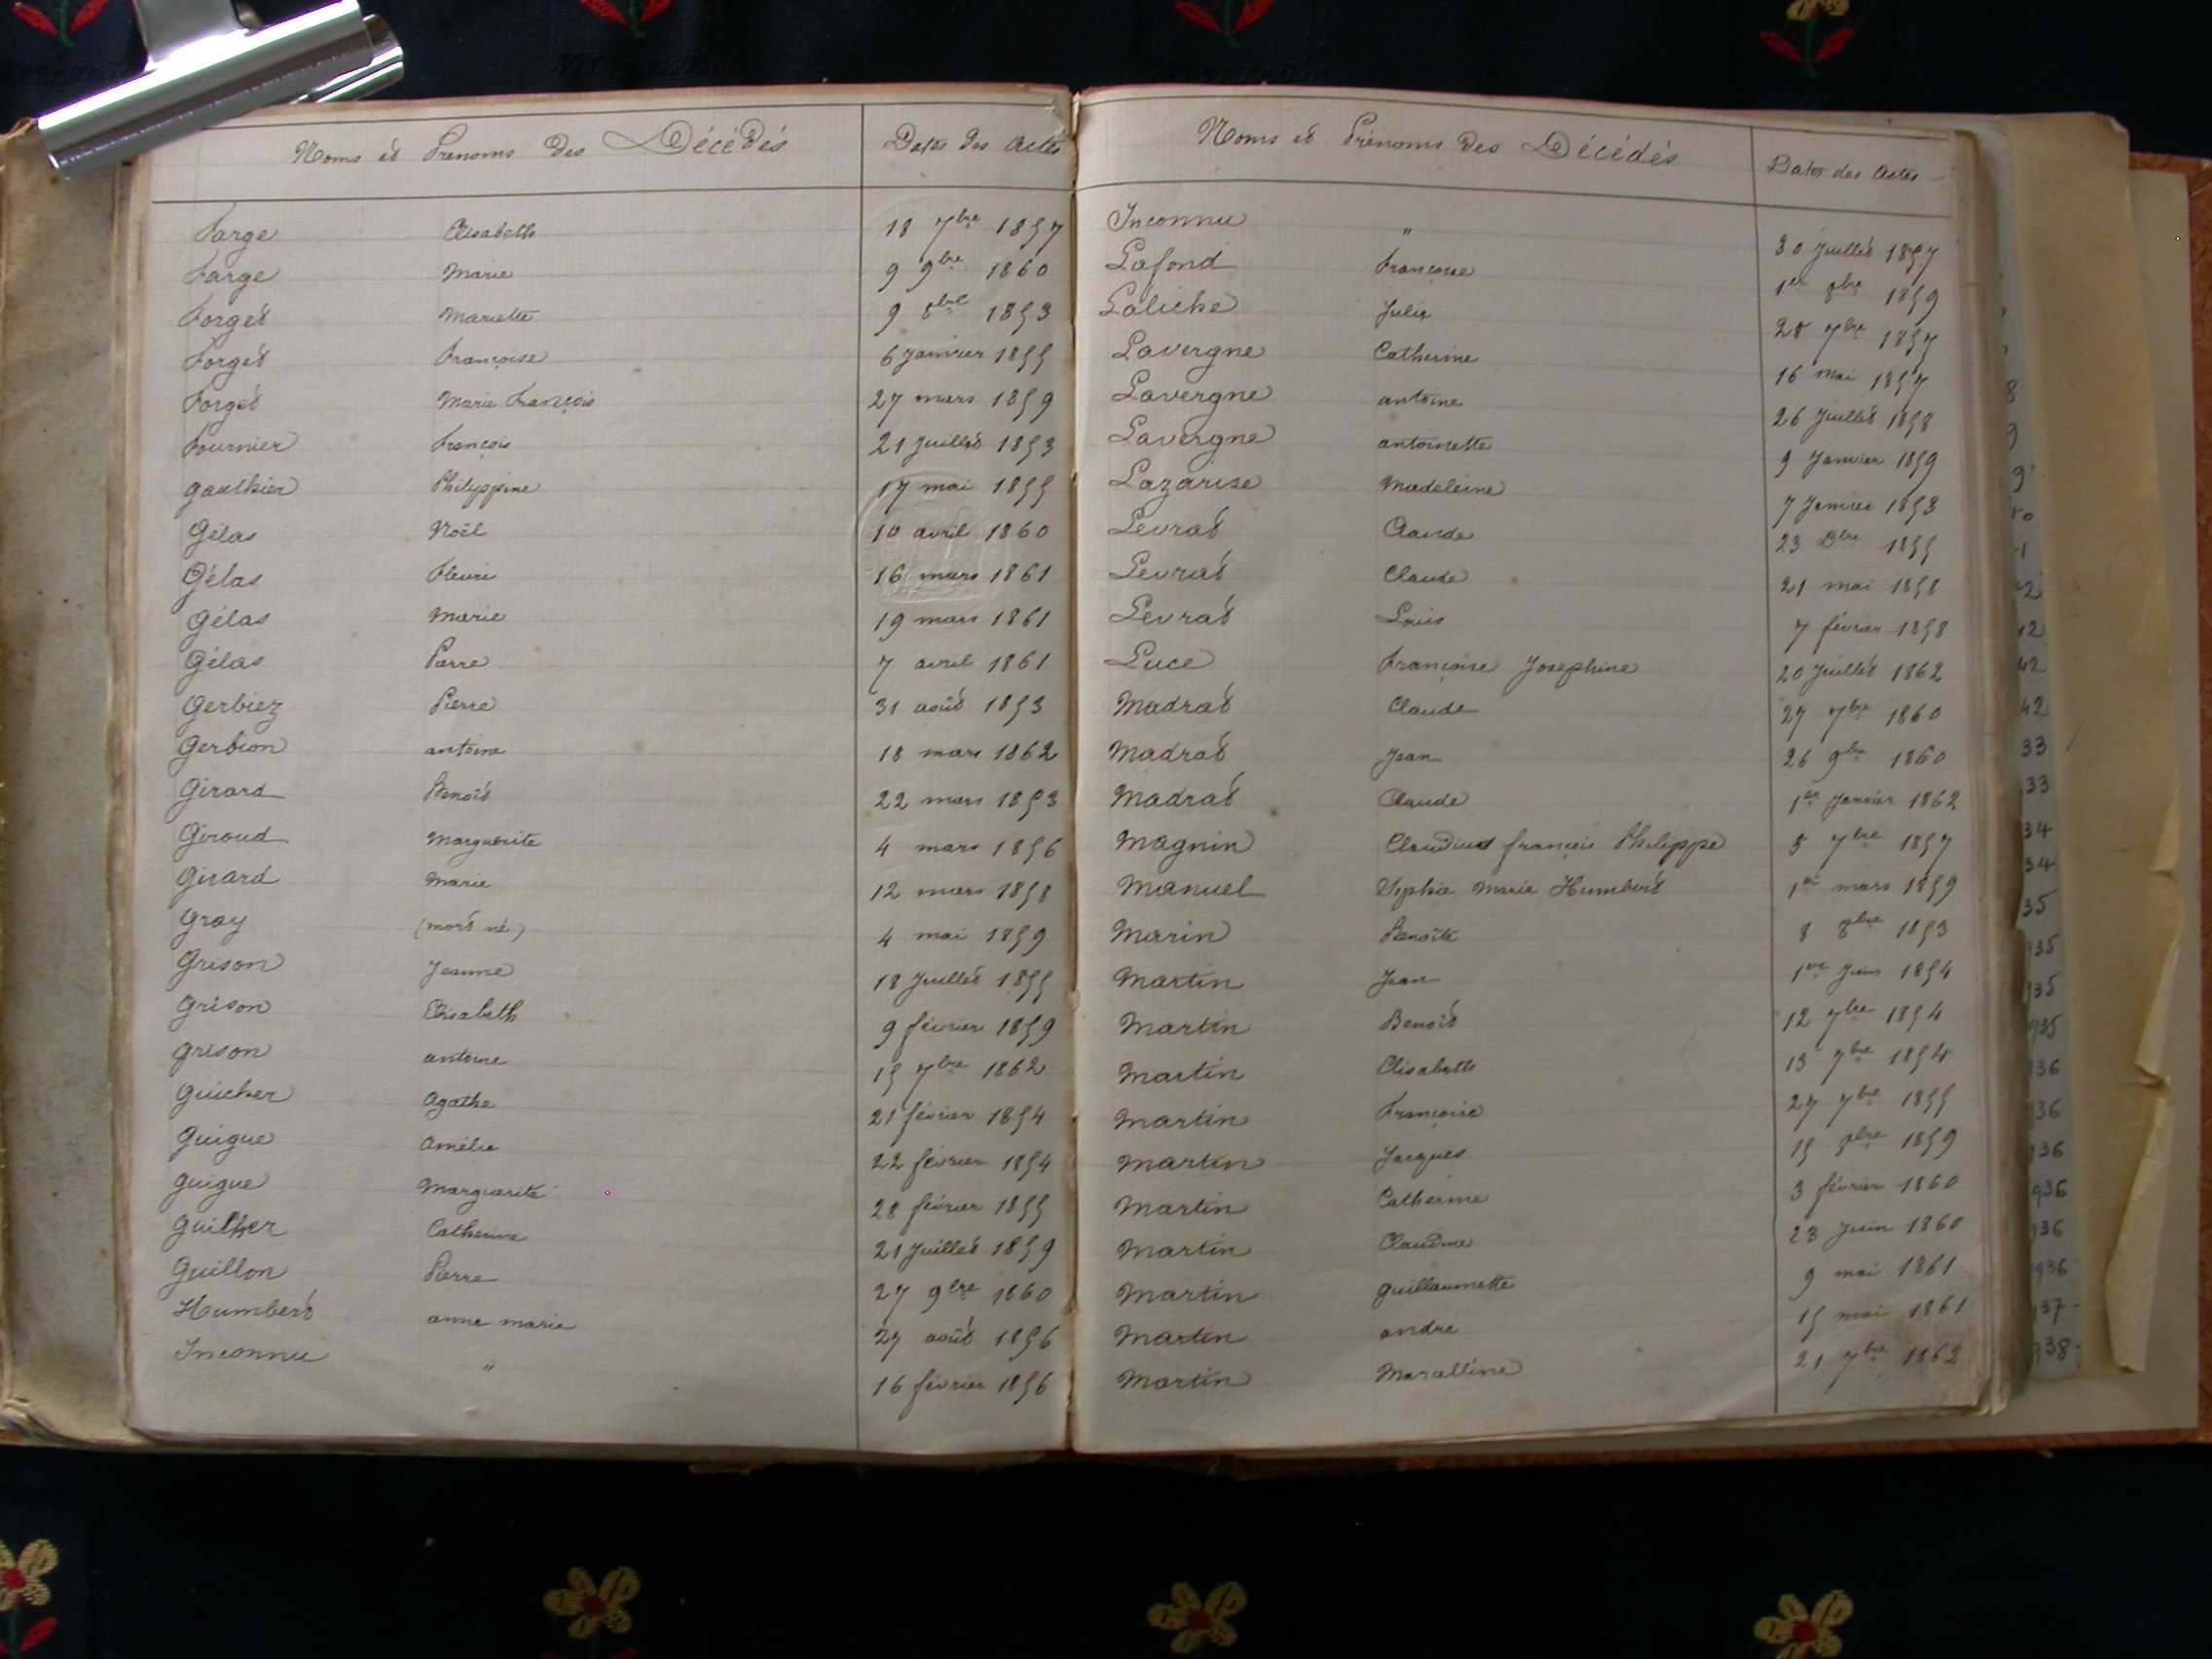 Noms et Prénoms des Décédés Dates des Actes
Farge Elisabeth 18 7bre 1857
Farge Marie 9 9bre 1860
Forget Mariette 9 8bre 1853
Forget Françoise 6 Janvier 1855
Forget Marie François 27 mars 1859
Fournier François 21 Juillet 1853
Gauthier Philippine 17 mai 1855
Gélas Noël 10 avril 1860
Gélas Fleurie 16 mars 1861
Gélas Marie 19 mars 1861
Gélas Pierre 7 avril 1861
Gerbiez Pierre 31 août 1853
Gerbion antoine 18 mars 1862
Girard Benoît 22 mars 1853
Giroud Marguerite 4 mars 1856
Girard Marie 12 mars 1858
Gray (mort né) 4 mai 1859
Grison Jeanne 18 Juillet 1855
Grison Elisabeth 9 février 1859
Grison antoine 15 7bre 1862
Guicher Agathe 21 février 1854
Guigue Amélie 22 février 1854
Guigue Marguerite 28 février 1855
Guilher Catherine 21 Juillet 1859
Guillon Pierre 27 9bre 1860
Humbert anne marie 27 août 1856
Inconnu " 16 février 1856
Noms et Prénoms des Décédés Dates des Actes
Inconnu " 30 Juillet 1857
Lafond Françoise 1er 8bre 1859
Laliche Julie 28 7bre 1857
Lavergne Catherine 16 mai 1857
Lavergne antoine 26 Juillet 1858
Lavergne antoinette 9 Janvier 1859
Lazarise Madeleine 7 Janvier 1853
Levrat Claude 23 Dbre 1855
Levrat Claude 21 mai 1858
Levrat Louis 7 février 1858
Luce Françoise Josephine 20 Juillet 1862
Madrat Claude 27 7bre 1860
Madrat Jean 26 9bre 1860
Madrat Claude 1er Janvier 1862
Magnin Claudius françois Philippe 5 7bre 1857
Manuel Sophie Marie Humbert 1er mars 1859
Marin Benoîte 8 8bre 1853
Martin Jean 1er Juin 1854
Martin Benoît 12 7bre 1854
Martin Elisabeth 13 7bre 1854
Martin Françoise 27 7bre 1855
Martin Jacques 15 8bre 1859
Martin Catherine 3 février 1860
Martin Claudine 23 Juin 1860
Martin Guillaumette 9 mai 1861
Martin andré 15 mai 1861
Martin Marcelline 21 7bre 1862